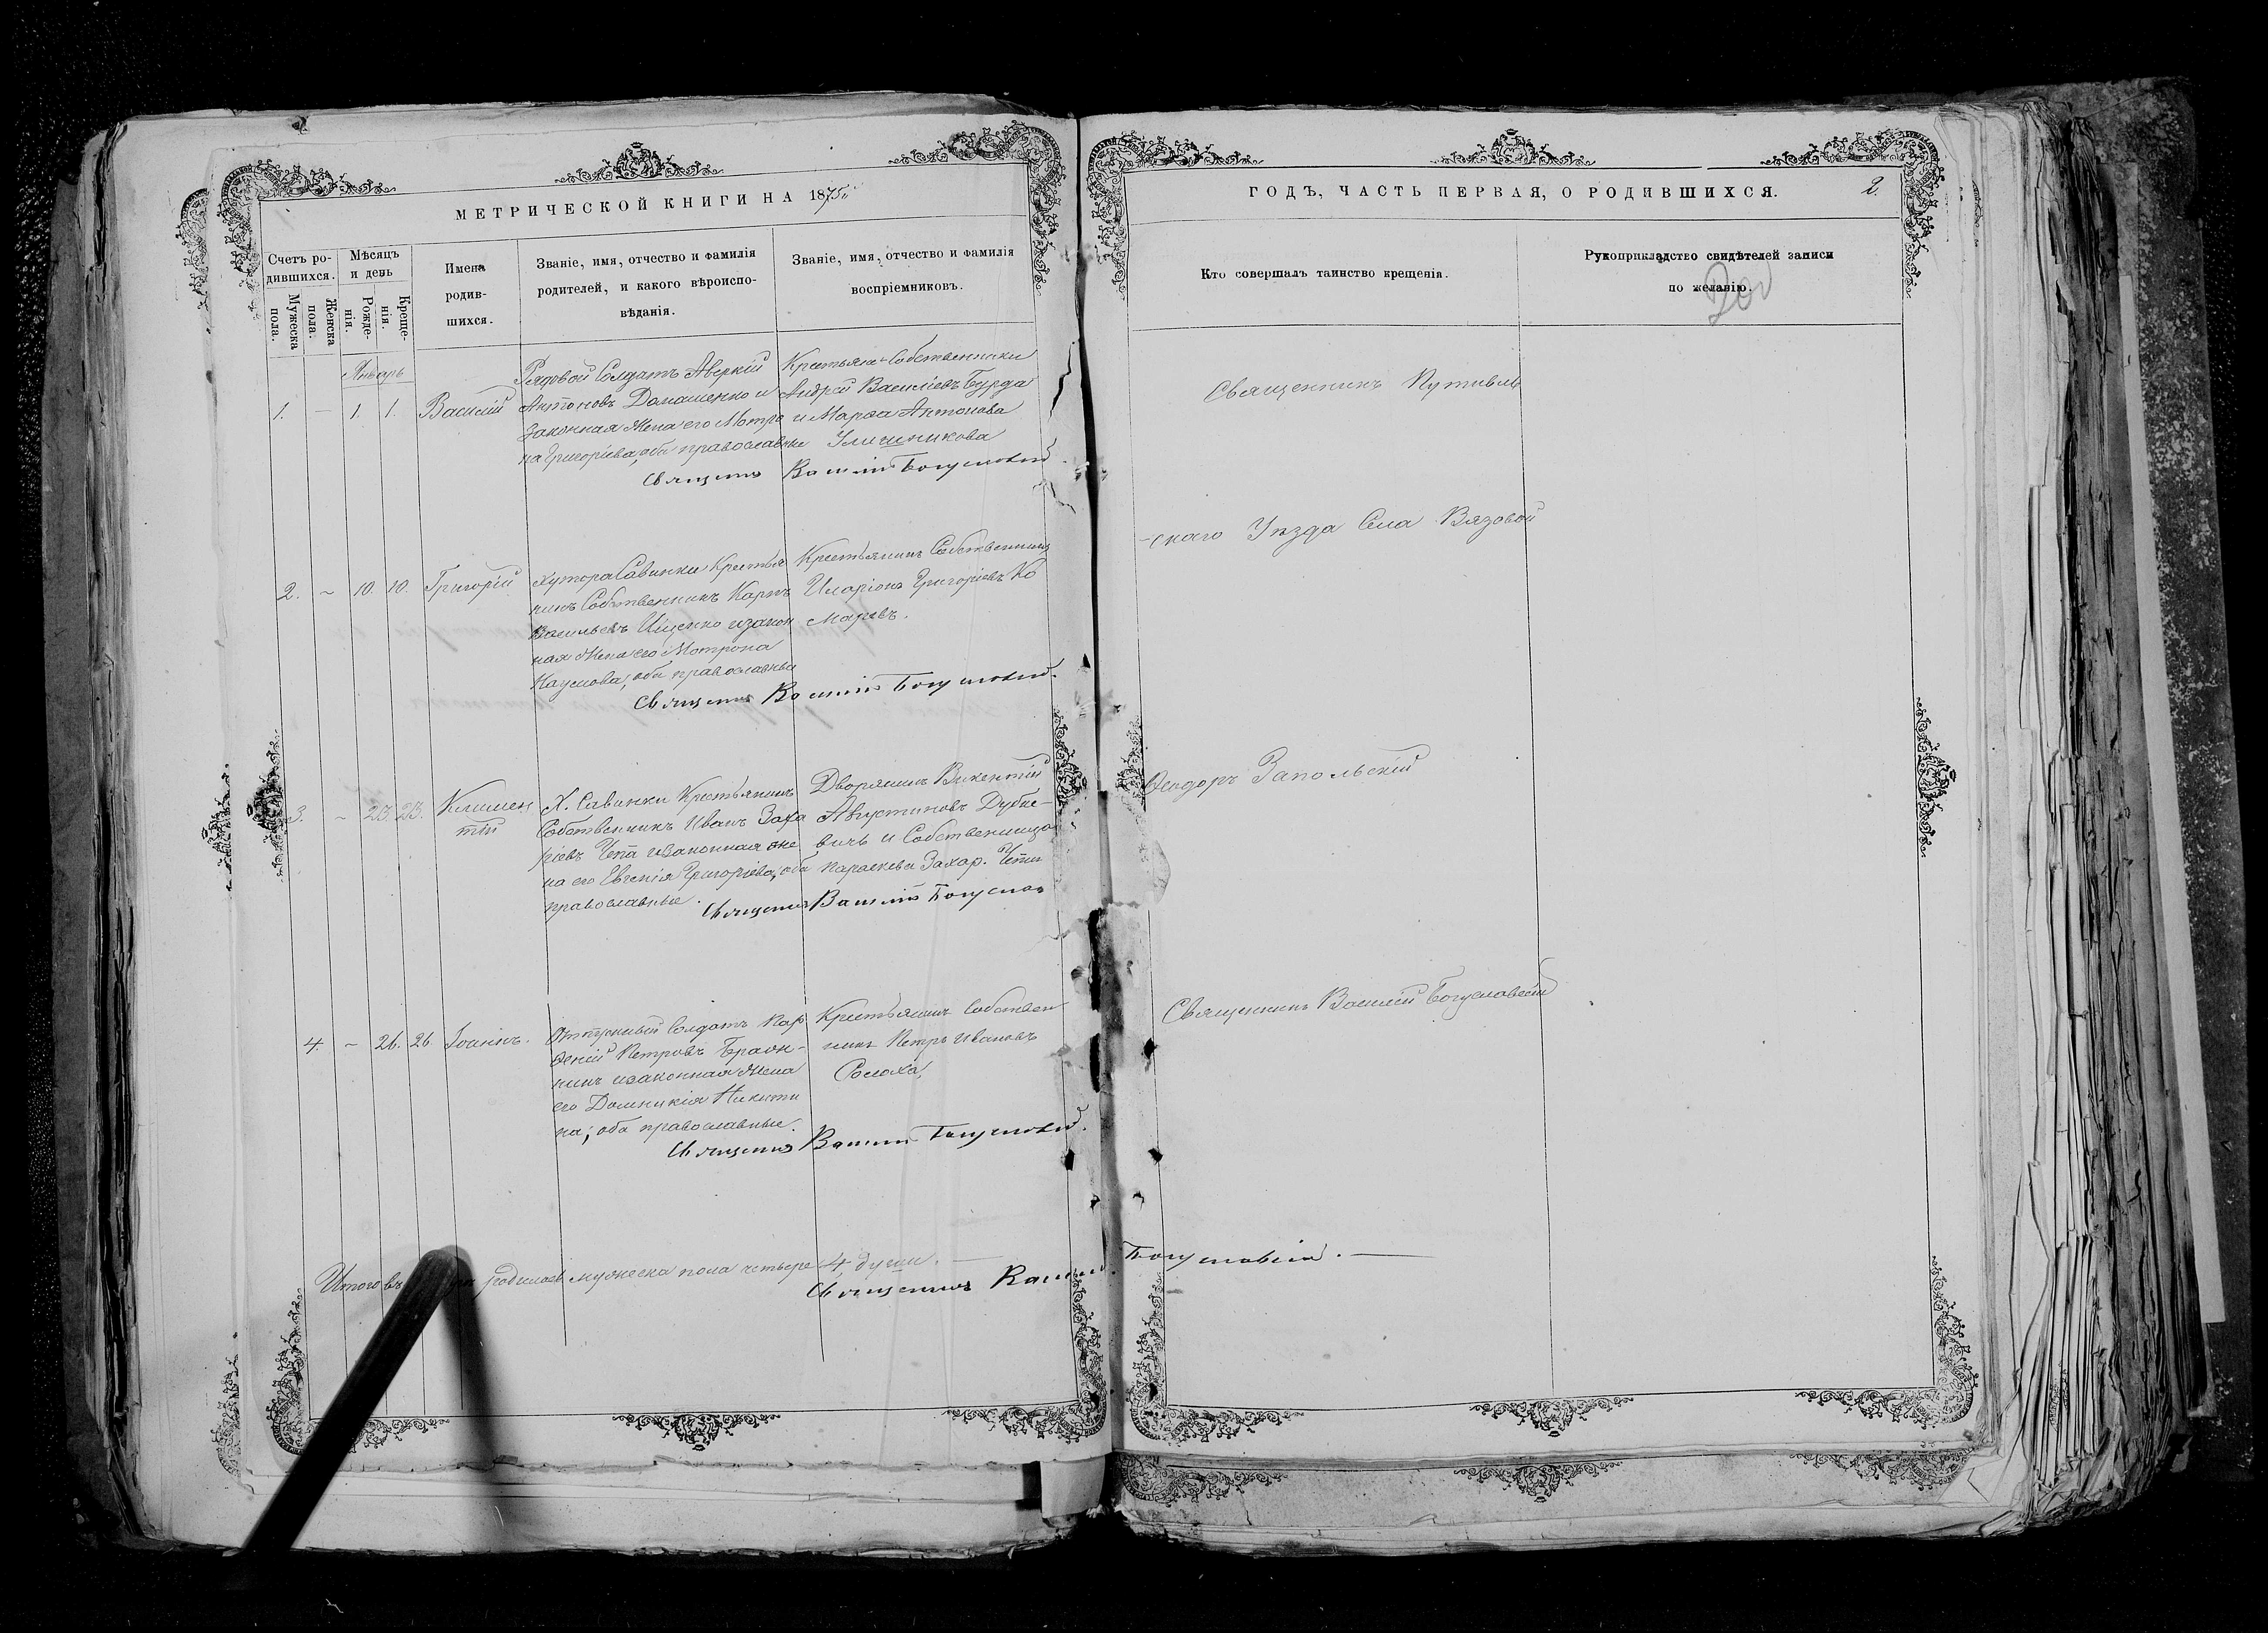 МЕТРИЧЕСКОЙ КНИГИ НА 1875
Счетъ ро-
дившихся.
Мужеска
пола.
Женска
пола.
Мѣсяцъ
и день
Рожде-
нія.
Креще-
нія.
Имена
родив-
шихся.
Званіе, имя, отчество и фамилія
родителей, и какого вѣроиспо-
вѣданія.
Званіе, имя, отчество и фамилія
воспріемниковъ.
Январь
1. — 1. 1. Василій
Рядовой Солдатъ Аверкій
Антоновъ Домашенко и
законная Жена его Мотро
на Григорієва, оба православные
Крестьяне Собственники
Андрей Василіевъ Бурда
и Марѳа Антонова
Священникъ Василій Богуславскій
2. ~ 10. 10. Григорій
Хутора Савинки Крестья
нинъ Собственникъ Карпъ
Васильевъ Ищенко и закон
ная Жена его Мотрона
Наумова, оба православные
Крестьянинъ Собственникъ
Иларіонъ Григоріевъ Ко
маревъ.
Священникъ Василій Богуславскій.
3. ~ 23. 23. Климен
тій
Х. Савинки Крестьянинъ
Собственникъ Иванъ Заха
ріевъ Чепа и законная же
на его Евгенія Григоріева, оба
православные.
Дворянинъ Викентій
Августиновъ Дубне-
вичъ и Собственница
Параскева Захар.
Священникъ Василій
4. ~ 26. 26 Іоаннъ.
Солдатъ Пар
ѳеній Петровъ
нинъ и законная Жена
его Домникія Никити
на; оба православные.
Крестьянинъ Собствен
никъ Петръ Ивановъ
Солоха,
Священникъ Василій Богуславскій.
Итого въ родилось мужеска пола четыре 4 души. —
Священникъ Василій Богуславскій. —
ГОДЪ, ЧАСТЬ ПЕРВАЯ, О РОДИВШИХСЯ.
2.
Кто совершалъ таинство крещенія.
Рукоприкладство свидѣтелей записи
по желанію.
Священникъ Путивль
-скаго Уѣзда Села Вязовой
Ѳеодоръ Запольскій
Священникъ Василій Богуславскій